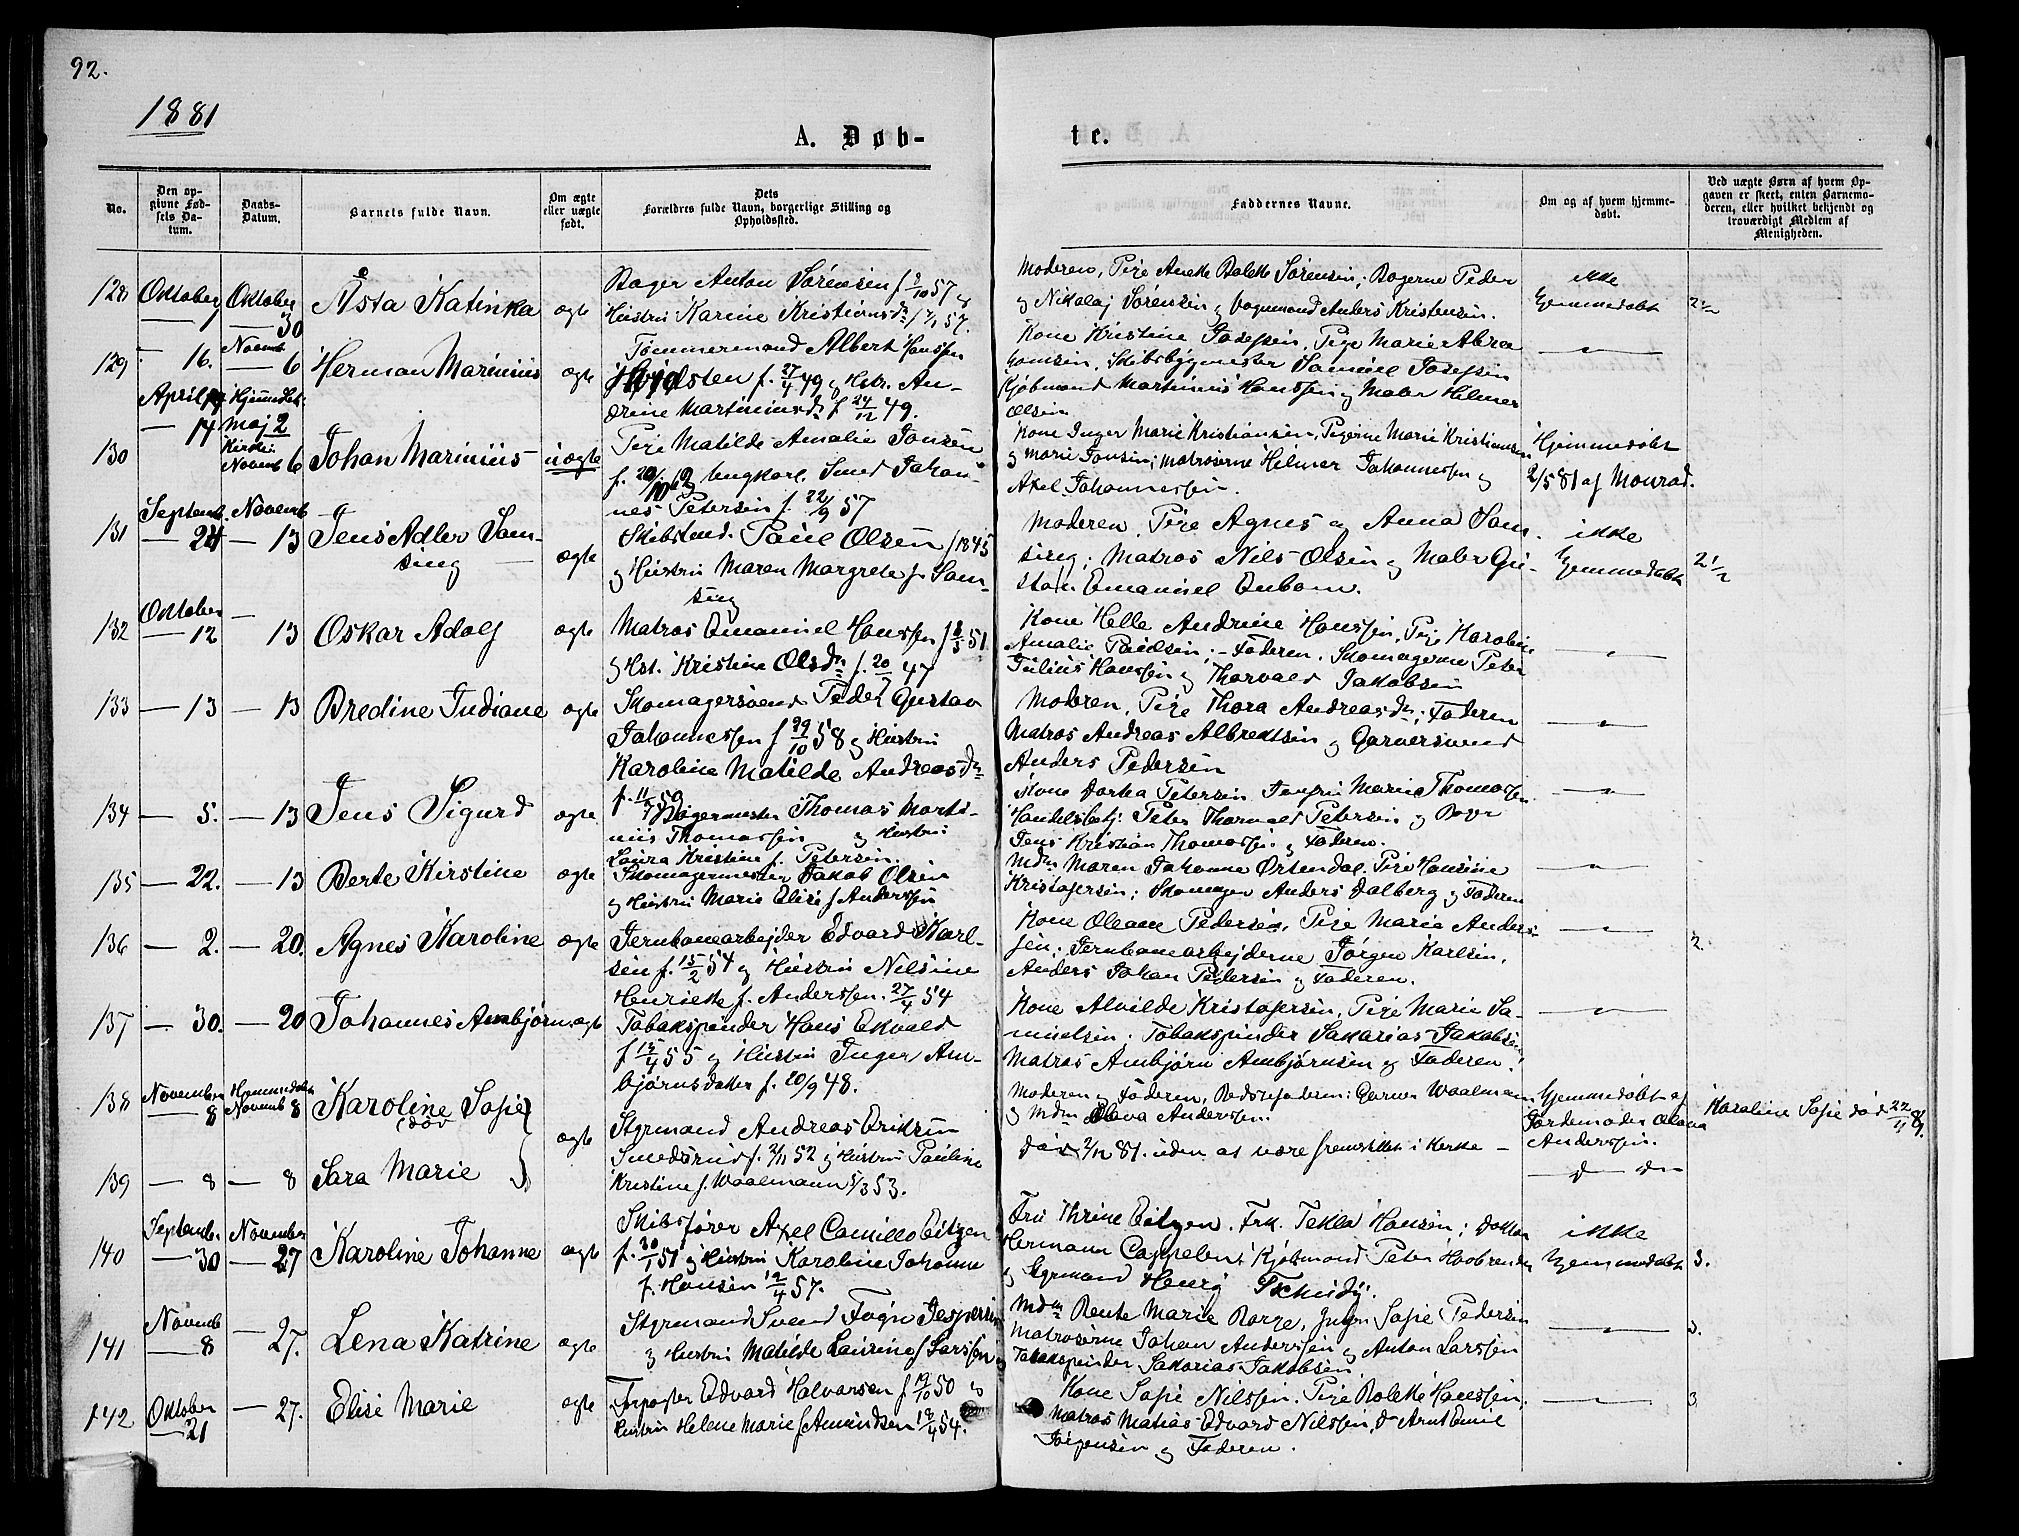 92.
1881
A. Døb-
te.
No.
Den op-
givne Fød-
sels Da-
tum.
Daabs-
Datum.
Barnets fulde Navn.
Om ægte
eller uægte
født.
Dets
Forældres fulde Navn, borgerlige Stilling og
Opholdssted.
Faddernes Navne.
Om og af hvem hjemme-
døbt.
Ved uægte Børn af hvem Op-
gaven er skeet, enten Barnemo-
deren, eller hvilket bekjendt og
troværdigt Medlem af
Menigheden.
128 Oktober 7 Oktober 30 Åsta Katinka ægte
Bager Anton Sørensen f 2/10 57 og
Hustru Karine Kristiansdr 57.
Moderen, Pige Anette Bolette Sørensen; Bagerne Peder
og Nikolaj Sørensen og Vognmand Anders Kristensen.
ikke
hjemmedøbt
2 1/2
129 — 16. Novemb — 6 Herman Marinius ægte
Tømmermand Albert Hansen
f. 27/4 49 og Hstr. An-
drine Martiniusdr f 24/12 49.
Kone Kristine Josefsen, Pige Marie Abra
hamsen, Skibsbygmester Samuel Josefsen
Kjøbmand Martinius Hanssen og Maler Helmer
Olsen
— " —
130 April — 14 Hjemmedøbt Maj 2 Kirken Novemb 6 Johan Marinius uægte
Pige Matilde Amalie Jonsen
ungkarl Smed Johan-
nes Petersen f. 22/9 57
Kone Inger Marie Kristiansen, Pigerne Marie Kristiansen
og Marie Jonsen; Matroserne Helmer Johannessen og
Axel Johannessen.
Hjemmedøbt
2/5 81 af Monrad.
131 Septemb. — 24 Novemb — 13 Jens Adler Sam-
sing — ægte
Skibstmd. Paul Olsen f 1845
og Hustru Maren Margrete f. Sam-
sing
Moderen, Pige Agnes og Anna Sam-
sing; Matros Nils Olsen og Maler Gu-
stav Emanuel Enbom.
ikke
hjemmedøbt
2 1/2
132 Oktober — 12 — 13 Oskar Adolf ægte
Matros Emanuel Hanssen f 8/3 51
og Hst. Kristine Olsdr f. 20/ 47
Kone Helle Andrine Hanssen, Pige Karoline
Amalie Paulsen; — Faderen, Skomagerne Peter
Julius Hanssen og Thorvald Jakobsen
— " —
133 — 13 — 13 Bredine Indiane ægte
Skomagersvend Peder Gustav
Johannessen f 29/10 58 og Hustru
Karoline Matilde Andreasdr
f. 11/7 59
Moderen, Pige Thora Andreasdr; Faderen
Matros Andreas Albrektsen og Garversvend
Anders Pedersen
— " —
134 — 5. — 13 Jens Sigurd ægte
Bagermester Thomas Marti-
nius Thomassen og Hustru
Laura Kristine f. Petersen.
Kone Dorthea Petersen Jomfru Marie Thomassen
Handelsbetj. Peter Thorvald Petersen og Bager
Jens Kristian Thomassen og Faderen.
— " —
135 — 22. — 13 Berte Kirstine ægte
Skomagermester Jakob Olsen
og Hustru Marie Elise f Anderssen
Mdm Maren Johanne Ørtendal. Pige Hansine
Kristofersen; Skomager Anders Dalberg og Faderen
— " —
136 — 2. — 20. Agnes Karoline ægte
Jernbanearbejder Edvard Karl-
sen f. 15/2 54 og Hustru Nilsine
Henriette f. Anderssen. 27/4 54
Kone Oleane Pedersen, Pige Maria Anders-
sen; Jernbanearbejderne Jørgen Karlsen,
Anders Johan Pedersen og Faderen.
— " —
2
137 — 30. — 20 Johannes Ambjørn ægte
Tobakspinder Hans Ekvald
f 15/4 55 og Hustru Inger Am-
bjørnsdatter f. 20/9 48.
Kone Alvilde Kristofersen, Pige Marie Sa-
muelsen. Tobakspinder Sakarias Jakobsen,
Matros Ambjørn Ambjørnsen og Faderen.
— " —
138 November — 8 Hjemmedøbt Novemb 8 Karoline Sofie
død
ægte
Styrmand Andreas Eriksen
Smedsrud f. 2/11 52 og Hustru Pauline
Kristine f. Waalmann 5/3 53.
Moderen og Faderen, Bedstefaderen: Garver Waalmann
og Mdm Olava Anderssen.
Hjemmedøbt af
Jordemoder Olava
Anderssen.
Karoline Sofie død 22/11 81.
139 — 8 — 8 Sara Marie
død 2/12 81. uden at være fremstillet i Kirke —
— d — do —
140 Septemb. — 30 November — 27 Karoline Johanne ægte
Skibsfører Axel Camillo Eitzen
f. 30/1 51 og Hustru Karoline Johanne
f. Hansen 12/4 57.
Fru Thrine Eitzen. Frk. Tekla Hansen; Doktor
Hermann Cappelen, Kjøbmand Peter
og Styrmand Henry Tschudy.
ikke
hjemmedøbt
3.
141 Novemb — 8 — 27. Lena Katrine ægte
Styrmand Svend Fogn Jespersen
og Hustru Matilde Laurine f Larssen
Mdm Bente Marie Borge, Jngfr Sofie Pedersen
Matroserne Johan Anderssen og Anton Larssen
Tobakspinder Sakarias Jakobsen
— " —
3.
142 Oktober — 21 — 27. Elise Marie ægte
Edvard Halvorsen f 19/10 50 og
Hustru Helene Marie f Amundsen 18/4 54.
Kone Sofie Nilssen. Pige Bolette Hanssen,
Matros Matias Edvard Nilssen, do Arnt Emil
Jørgensen og Faderen.
— " —
3